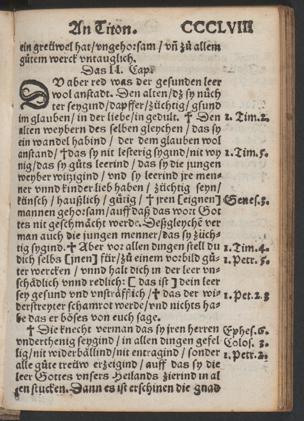 An Titon. CCCLVIII
ein greüwel hat/vngehorsam / vñ zů allem
gůtem werck vntauglich.
Das II. Cap.
DV aber red was der gesunden leer
wol anstadt. Den alten/dz sy nüch
ter seygind/dapffer/züchtig/gsund
im glauben/in der liebe/in gedult. ✝ Den 1. Tim. 2.
alten weybern des selben gleychen / das sy
ein wandel habind / der dem glauben wol
anstand/ ✝ das sy nit lesterig sygind/nit wy 1. Tim. 5.
nig/das sy gůts leerind / das sy die jungen
weyber witzigind / vnd sy leerind jre men-
ner vnnd kinder lieb haben / züchtig seyn/
künsch / haußlich / gůtig / ✝ jren [eignen] Genes. 3.
mannen gehorsam/auff daß das wort Got
tes nit geschmächt werde. Deßgleychẽ ver
man auch die jungen menner/das sy züch-
tig sygind. ✝ Aber vor allen dingen stell du 1. Tim. 4.
dich selbs [jnen] für/zů einem vorbild gů 1. Petr. 5.
ter wercken / vnnd halt dich in der leer vn-
schädlich vnnd redlich: [ das ist ] dein leer
sey gesund vnd vnsträfflich/ ✝ das der wi- 1. Pet. 2. 3
derstreyter schamrot werde/vnd nichts ha-
be das er böses von euch sage.
✝ Die knecht verman das sy jren herren Ephes. 6.
vnderthenig seygind / in allen dingen gefel Colos. 3.
lig/nit widerbällind/nit entragind / sonder 1. Petr. 2.
alle gůte treüw erzeigind / auff das sy die
leer Gottes vnsers Heilands zierind in al
len stucken. Dann es ist erschinen die gnad